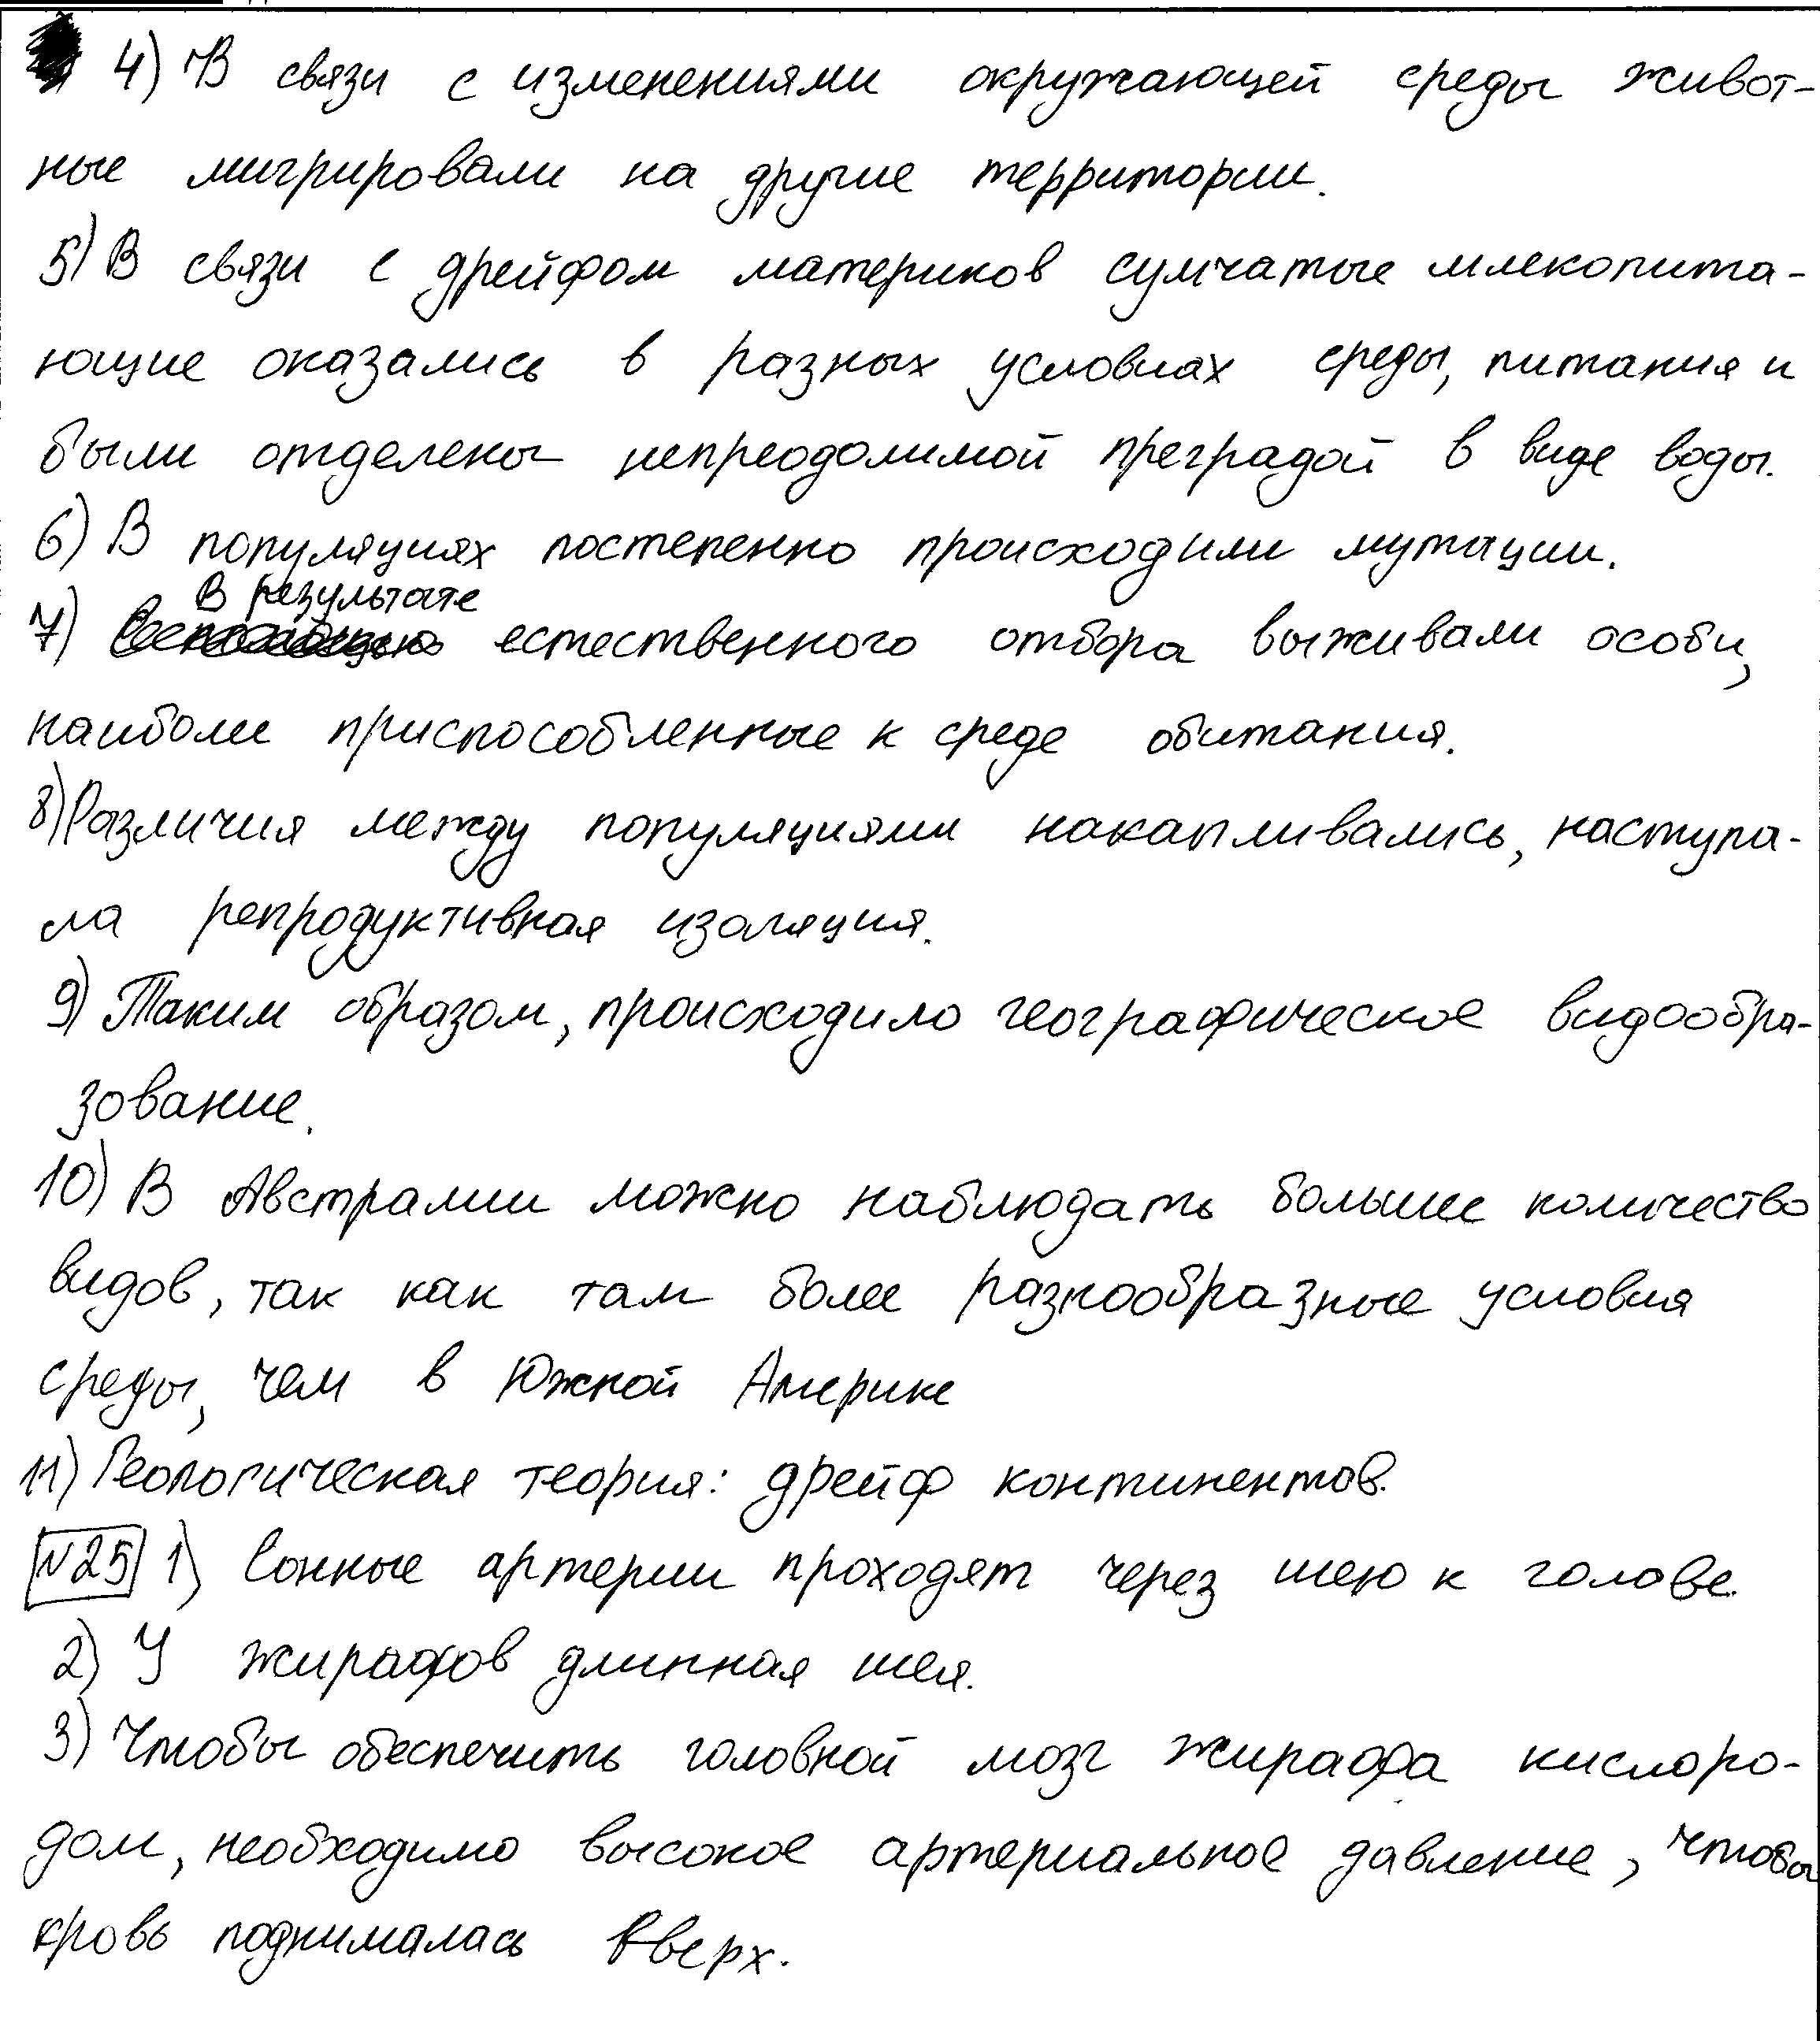 4) В связи с изменениями окружающей среды живот-
ные мигрировали на другие территории.
5) В связи с дрейфом материков сумчатые млекопита-
ющие оказались в разных условиях среды, питания и
были отделены непреодолимой преградой в виде воды.
6) В популяциях постепенно происходили мутации.
В результате
7) естественного отбора выживали особи,
наиболее приспособленные к среде обитания.
8) Различия между популяциями накапливались, наступа-
ла репродуктивная изоляция.
9) Таким образом, происходило географическое видообра-
зование.
10) В Австралии можно наблюдать большее количество
видов, так как там более разнообразные условия
среды, чем в Южной Америке
11) Геологическая теория: дрейф континентов.
N25 1) Сонные артерии проходят через шею к голове.
2) У жирафов длинная шея.
3) Чтобы обеспечить головной мозг жирафа кислоро-
дом, необходимо высокое артериальное давление, чтобы
кровь поднималась вверх.